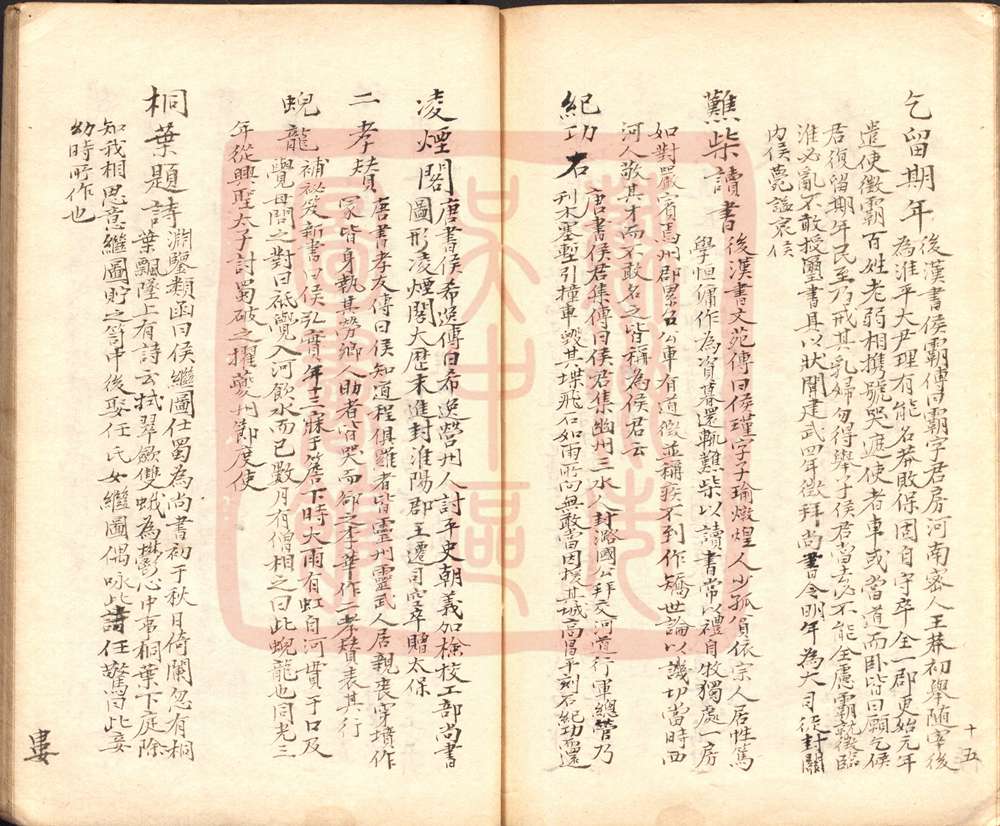 乞留期年 後漢書侯霸傳曰霸字君房河南密人王莽初舉隨宰後
為淮平大尹理有能名莽敗保固自守卒全一郡更始元年
遣使徵霸百姓老弱相攜號哭遮使者車或當道而臥皆曰願乞侯
君復留期年民至乃戒其乳婦勿得舉子侯君當去必不能全慮霸就徵臨
淮必亂不敢授璽書具以狀聞建武四年徵拜尚書令明年為大司徒封關
內侯薨諡哀侯
爇柴讀書 後漢書文苑傳曰侯瑾字子瑜燉煌人少孤貧依宗人居性篤
學恒傭作為資暮還輒爇柴以讀書常以禮自牧獨處一房
如對嚴賓焉州郡累召公車有道徵並稱疾不到作矯世論以譏切當時西
河人敬其才而不敢名之皆稱為侯君云
紀功石 唐書侯君集傳曰侯君集豳州三水人封潞國公拜交河道行軍總管乃
刊木塞塹引撞車毀其堞飛石如雨所向無敢當因拔其城高昌平刻石紀功還
凌煙閣 唐書侯希逸傳曰希逸營州人討平史朝義加檢校工部尚書
圖形凌煙閣大歷末進封淮陽郡王遷司空卒贈太保
二孝贊 唐書孝友傳曰侯知道程俱羅者皆靈州靈武人居親喪穿壙作
冢皆身執其勞鄉人助者皆哭而卻之李華作二孝贊表其行
蜺龍 補祕笈新書曰侯弘實年十三寐于簷下時大雨有虹自河貫于口及
覺母問之對曰祗覺入河飲水而已數月有僧相之曰此蜺龍也同光三
年從興聖太子討蜀破之擢夔州節度使
桐葉題詩 淵鑒類函曰侯繼圖仕蜀為尚書初于秋日倚闌忽有桐
葉飄墜上有詩云拭翠斂雙蛾為鬱心中事桐葉下庭除
知我相思意繼圖貯之笥中後娶任氏女繼圖偶咏此詩任驚曰此妾
幼時所作也
十五
婁